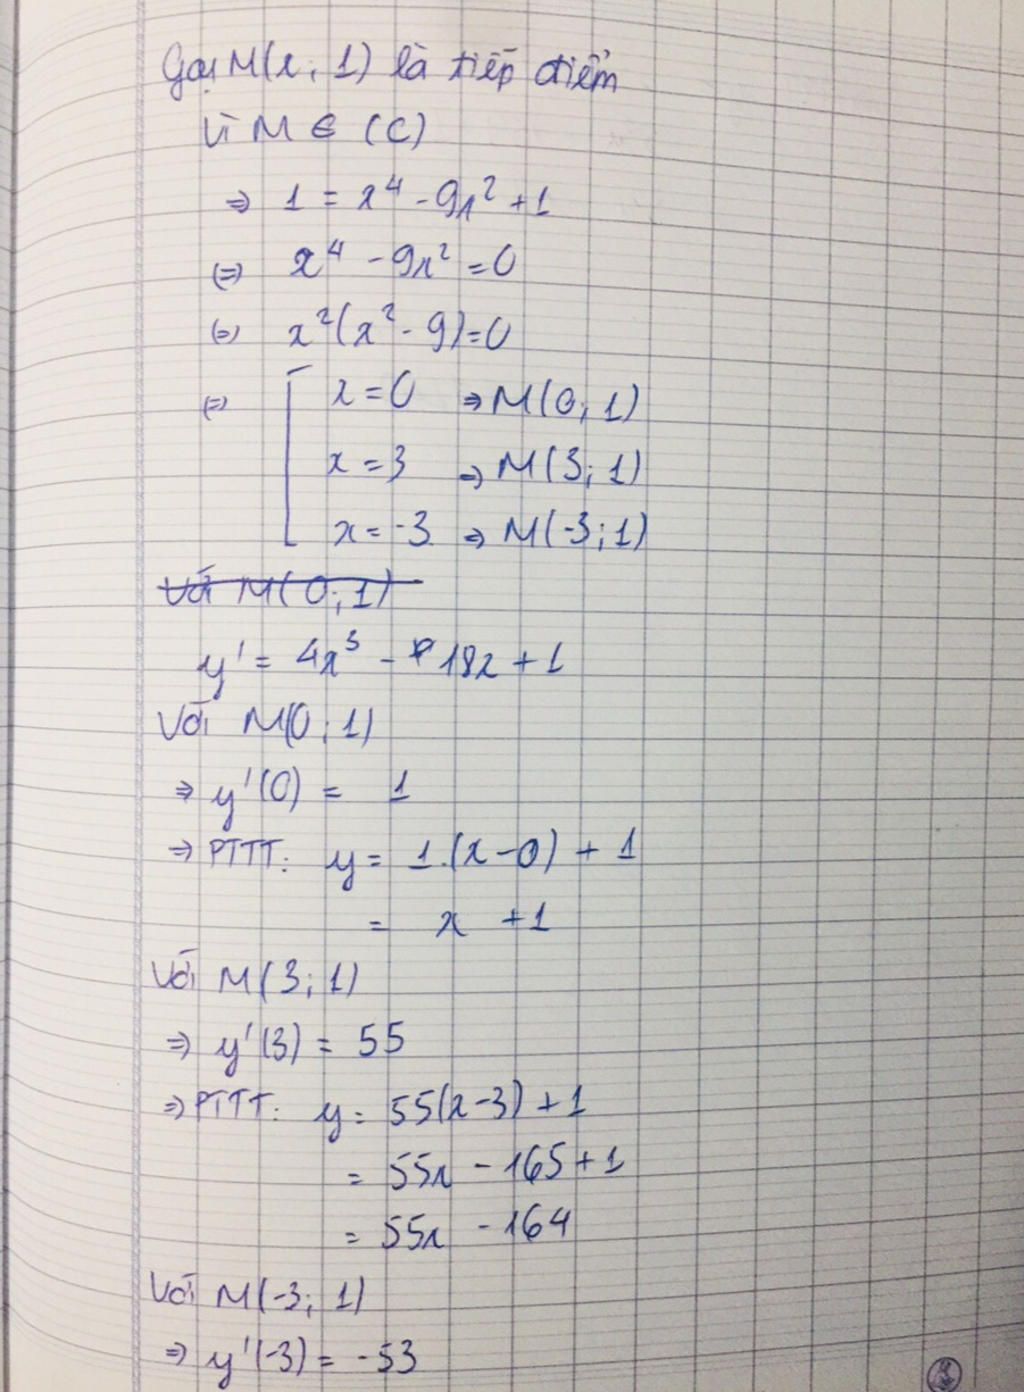 Gọi M(x; 1) là tiếp điểm
Vì M ∈ (C)
⇒ 1 = x⁴ - 9x² + 1
(=) x⁴ - 9x² = 0
(=) x²(x² - 9) = 0
(=) [ x = 0 ⇒ M(0; 1)
x = 3 ⇒ M(3; 1)
x = -3 ⇒ M(-3; 1)
Với M(0; 1)
y' = 4x³ - 18x + 1
Với M(0; 1)
⇒ y'(0) = 1
⇒ PTTT: y = 1.(x - 0) + 1
= x + 1
Với M(3; 1)
⇒ y'(3) = 55
⇒ PTTT: y = 55(x - 3) + 1
= 55x - 165 + 1
= 55x - 164
Với M(-3; 1)
⇒ y'(-3) = -53